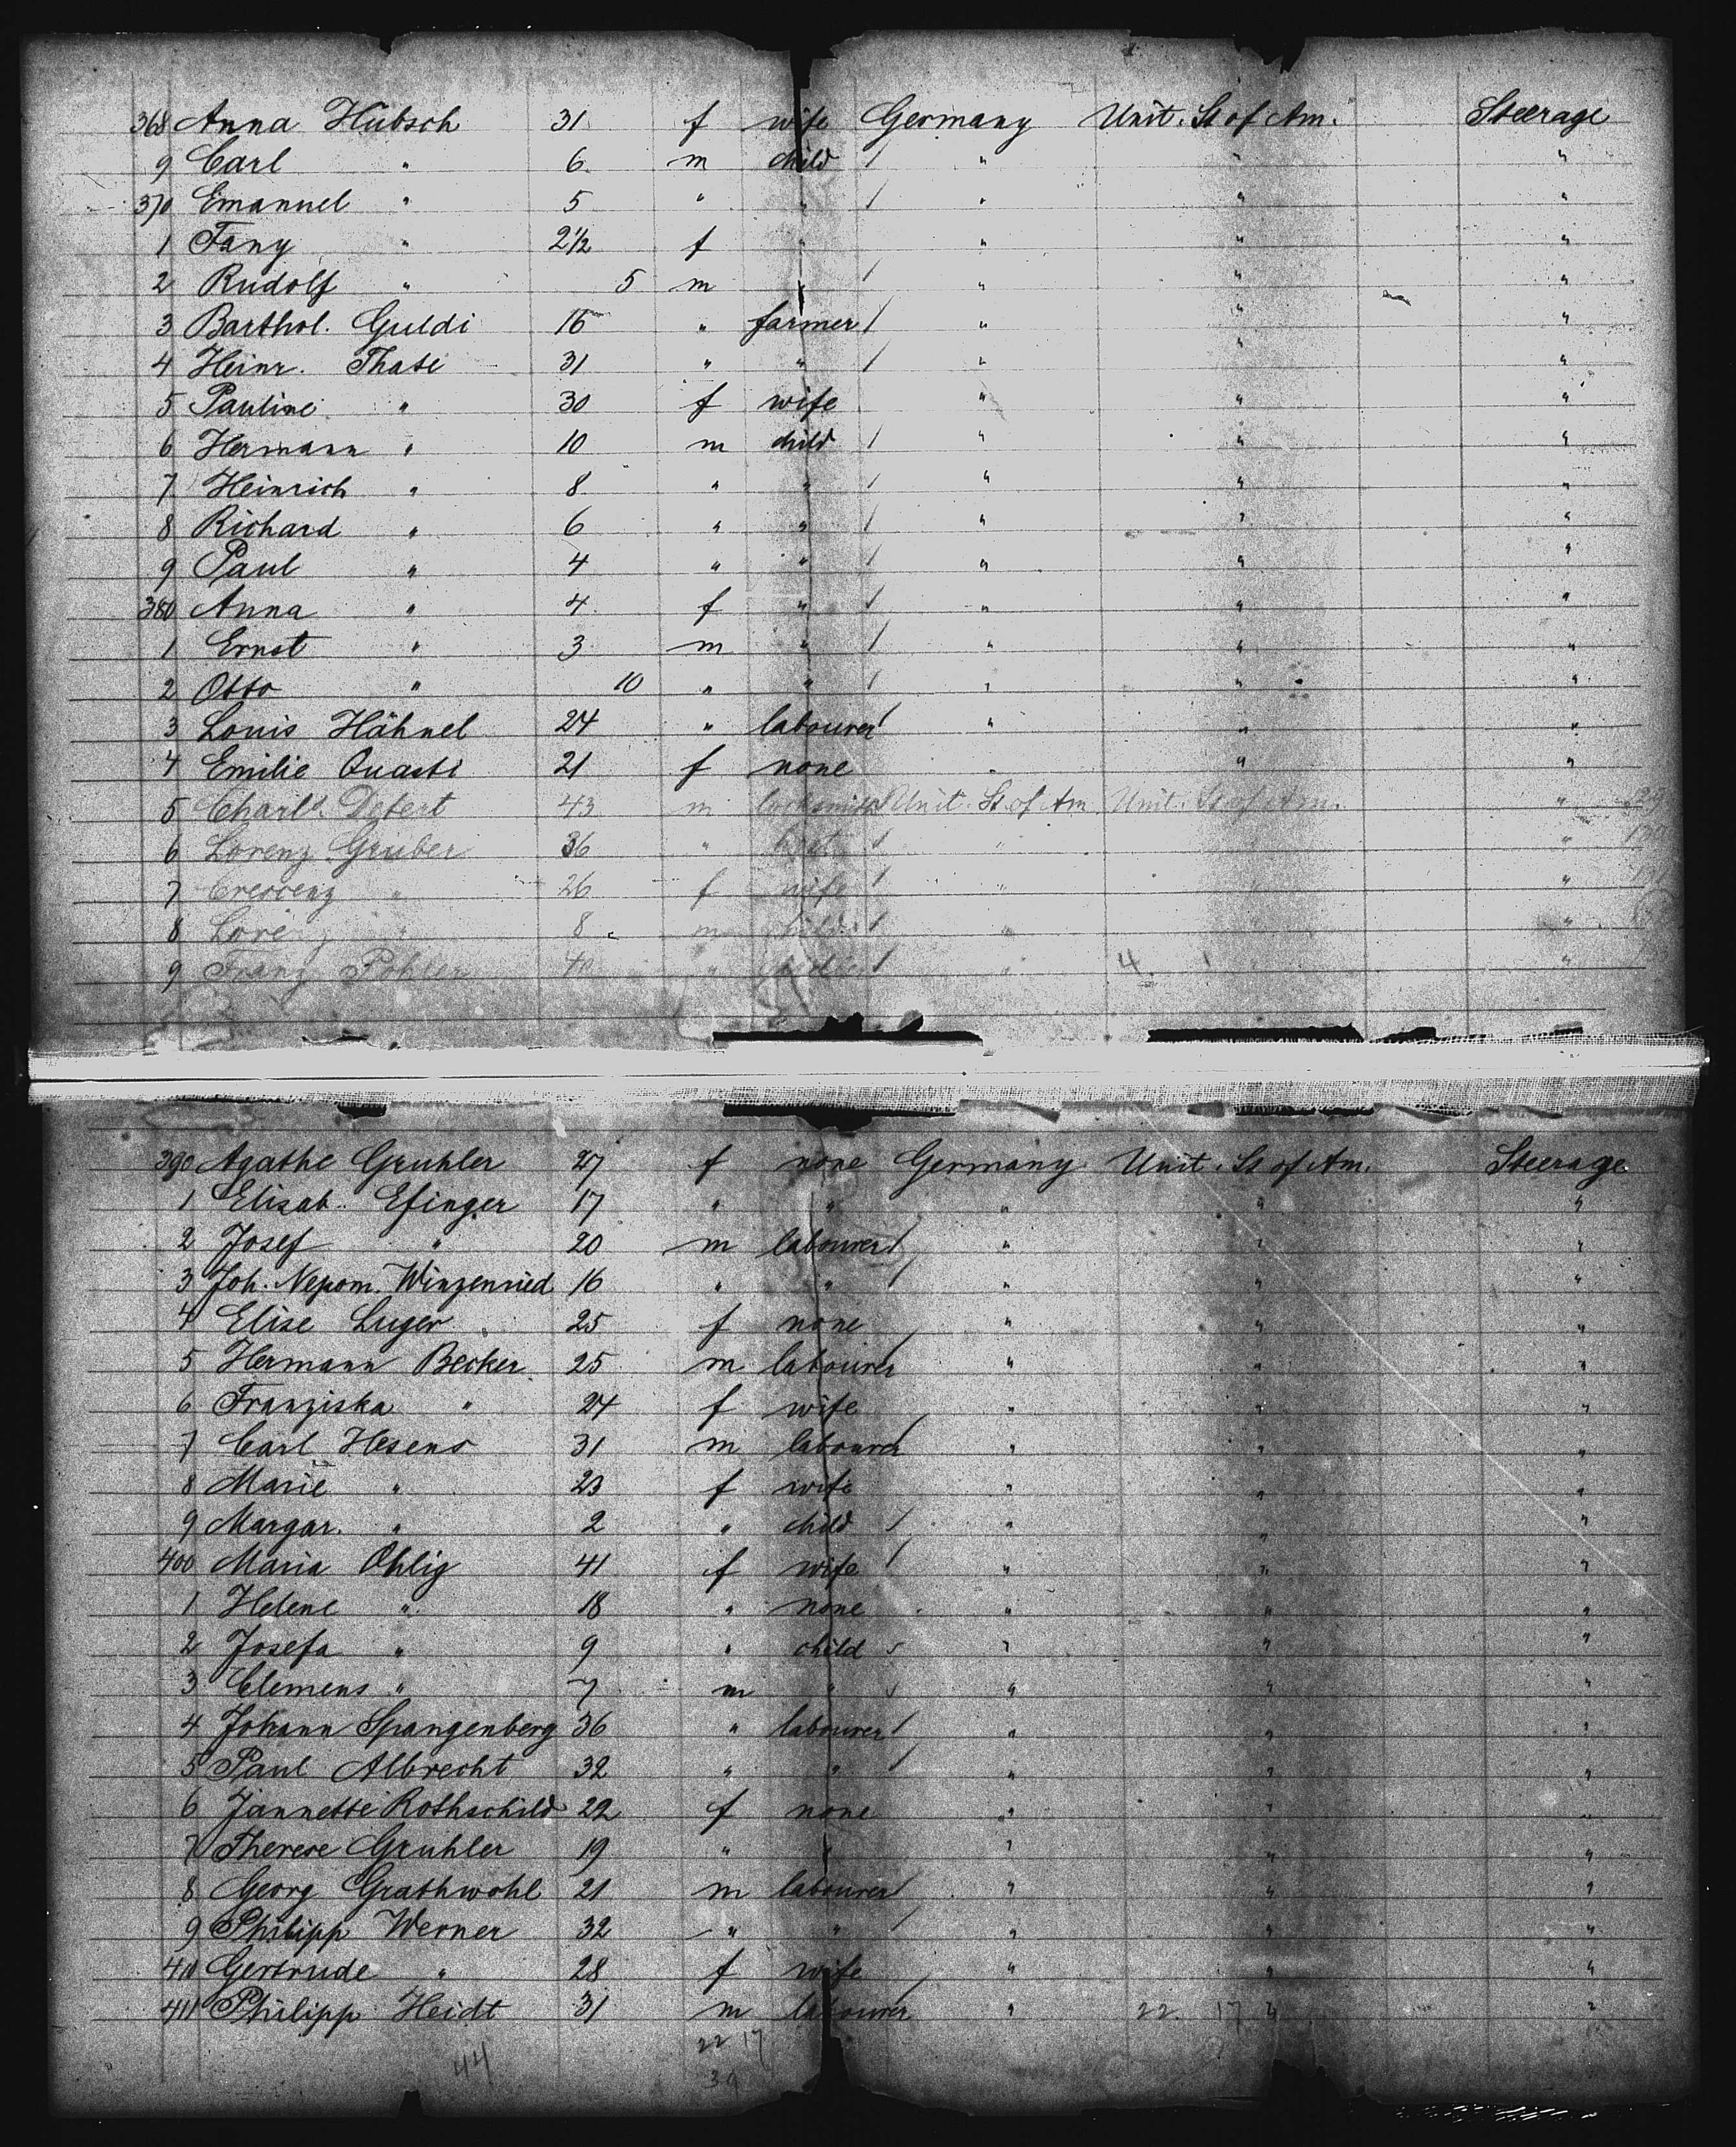 368 Anna Hübsch 31 f wife Germany Unit. St of Am. Steerage
9 Carl " 6 m child / " " "
370 Emanuel " 5 " " / " " "
1 Fany " 2 1/2 f " " " "
2 Rudolf " 5 m " / " " "
3 Barthol. Guldi 16 " farmer / " " "
4 Heinr. Thate 31 " " / " " "
5 Pauline " 30 f wife " " "
6 Hermann " 10 m child / " " "
7 Heinrich " 8 " " / " " "
8 Richard " 6 " " / " " "
9 Paul " 4 " " / " " "
380 Anna " 4 f " / " " "
1 Ernst " 3 m " / " " "
2 Otto " 10 " " / " " "
3 Louis Hähnel 24 " labourer / " " "
4 Emilie Quasti 21 f none " " "
5 Charls. Detert 43 m locksmith Unit. St. of Am. Unit. St of Am. "
6 Lorenz Gruber 36 " / " "
7 Crescenz " 26 f wife / " " "
8 Lorenz " 8 m child / " " "
9 Franz Pohler 40 " / " 4 1 "
390 Agathe Gruhler 27 f none Germany Unit. St of Am. Steerage
1 Elisab. Efinger 17 " " " " "
2 Josef " 20 m labourer / " " "
3 Joh. Nepom. Winzenried 16 " " / " " "
4 Elise Luger 25 f none " " "
5 Hermann Becker 25 m labourer " " "
6 Franziska " 24 f wife " " "
7 Carl Hesens 31 m labourer " " "
8 Marie " 23 f wife " " "
9 Margar. " 2 " child / " " "
400 Maria Ohlig 41 f wife / " " "
1 Helene " 18 " none " " "
2 Josefa " 9 " child " " "
3 Clemens " 7 m " " " "
4 Johann Spangenberg 36 " labourer / " " "
5 Paul Albrecht 32 " " / " " "
6 Jannette Rothschild 22 f none " " "
7 Therese Gruhler 19 " " " " "
8 Georg Grathwohl 21 m labourer / " " "
9 Philipp Werner 32 " " / " " "
410 Gertrude " 28 f wife " " "
411 Philipp Heidt 31 m labourer " 22 17 "
22 17
44 39